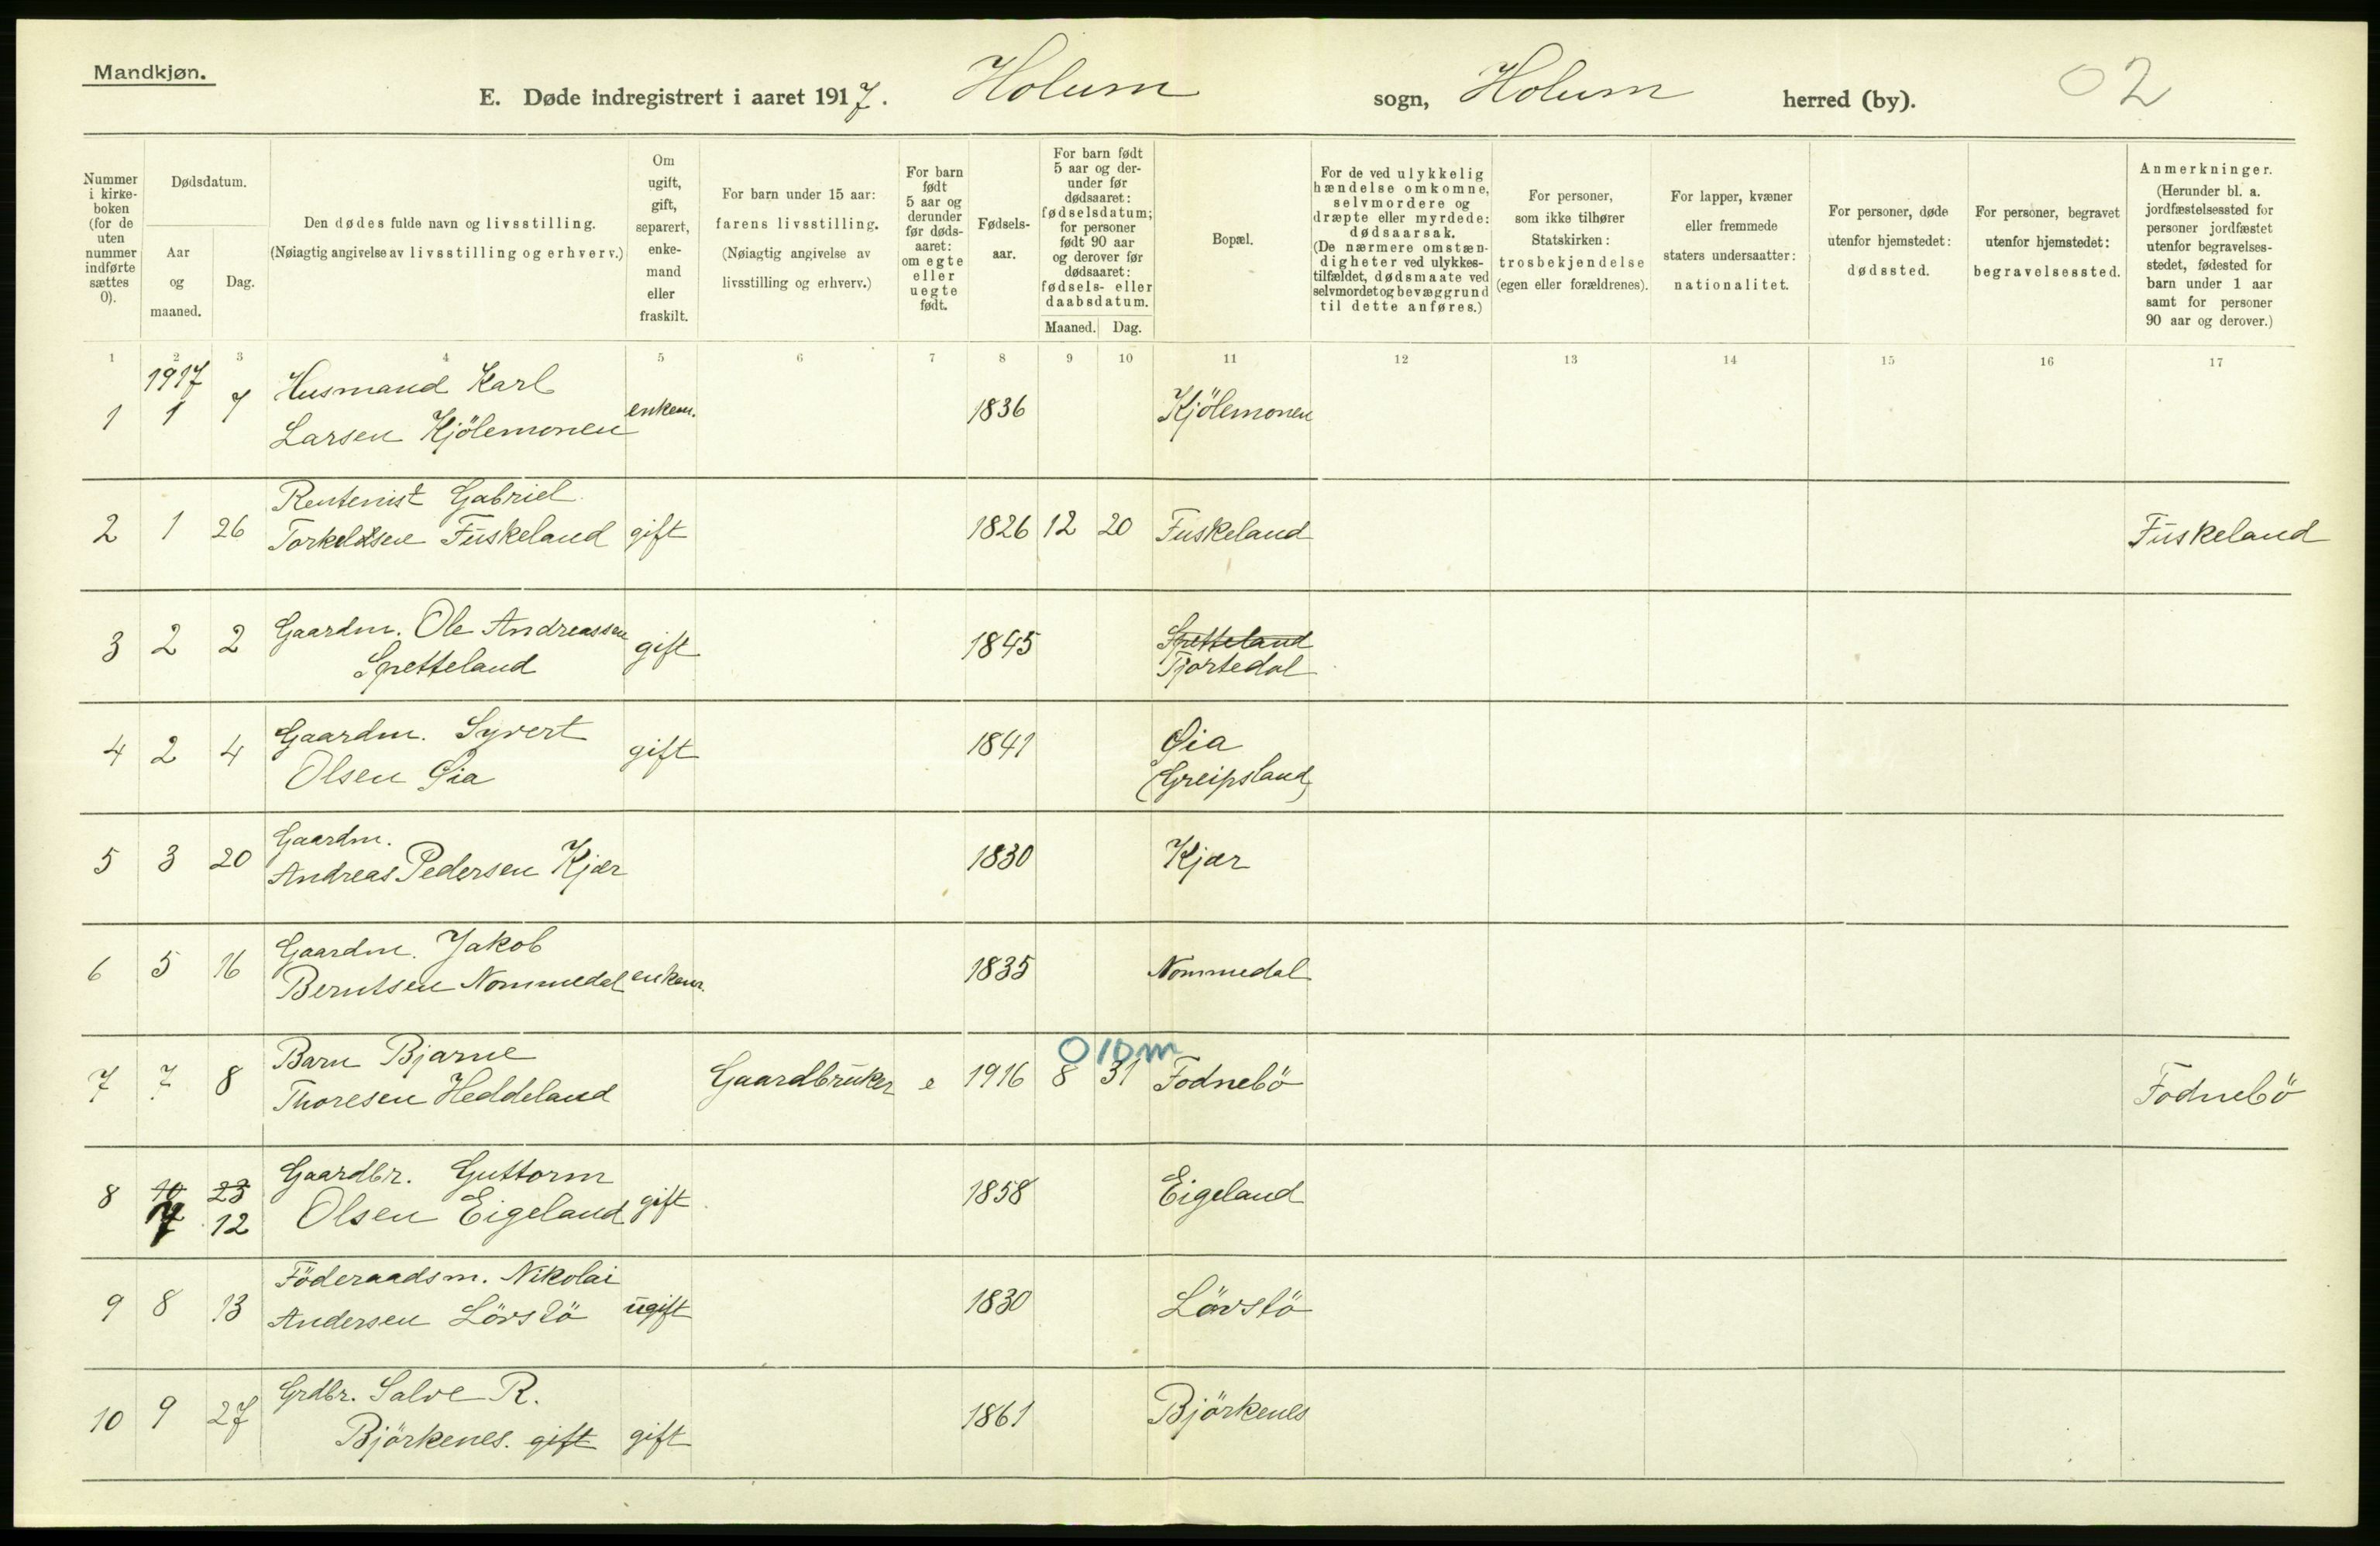 Mandkjøn.
E. Døde indregistrert i aaret 1917. Holum sogn, Holum herred (by). 02
Nummer i kirkeboken (for de uten nummer indførte sættes 0).
Dødsdatum.
Aar og maaned.
Dag.
Den dødes fulde navn og livsstilling.
(Nøiagtig angivelse av livsstilling og erhverv.)
Om ugift, gift, separert, enkemand eller fraskilt.
For barn under 15 aar:
farens livsstilling.
(Nøiagtig angivelse av livsstilling og erhverv.)
For barn født 5 aar og derunder før dødsaaret: om egte eller uegte født.
Fødselsaar.
For barn født 5 aar og derunder før dødsaaret: fødselsdatum; for personer født 90 aar og derover før dødsaaret: fødsels- eller daabsdatum.
Maaned. Dag.
Bopæl.
For de ved ulykkelig hændelse omkomne, selvmordere og dræpte eller myrdede: dødsaarsak.
(De nærmere omstændigheter ved ulykkestilfældet, dødsmaate ved selvmordet og bevæggrund til dette anføres.)
For personer, som ikke tilhører Statskirken: trosbekjendelse (egen eller forældrenes).
For lapper, kvæner eller fremmede staters undersaatter: nationalitet.
For personer, døde utenfor hjemstedet: dødssted.
For personer, begravet utenfor hjemstedet: begravelsessted.
Anmerkninger.
(Herunder bl. a. jordfæstelsessted for personer jordfæstet utenfor begravelsesstedet, fødested for barn under 1 aar samt for personer 90 aar og derover.)
1 2 3 4 5 6 7 8 9 10 11 12 13 14 15 16 17
1917
1 1 7 Husmand Karl
Larsen Kjölemonen enkem. 1836 Kjölemonen
2 1 26 Rentenist Gabriel
Torkeldsen Fuskeland gift 1826 12 20 Fuskeland Fuskeland
3 2 2 Gaardm. Ole Andreassen
Spetteland gift 1845 Spetteland
Tjortedal
4 2 4 Gaardm. Syvert
Olsen Øia gift 1841 Øia
(Greipsland)
5 3 20 Gaardm.
Andreas Pedersen Kjær 1830 Kjær
6 5 16 Gaardm. Jakob
Berntsen Nommedal enkem. 1835 Nommedal
0 10 m
7 7 8 Barn Bjarne
Thoresen Heddeland Gaardbruker e 1916 8 31 Fodnebö Fodnebö
8 10 23 Gaardbr. Guttorm
7 12 Olsen Eigeland gift 1858 Eigeland
9 8 13 Föderaadsm. Nikolai
Andersen Lövslö ugift 1830 Lövslö
10 9 27 Grdbr. Salve R.
Björkenes. gift gift 1861 Björkenes